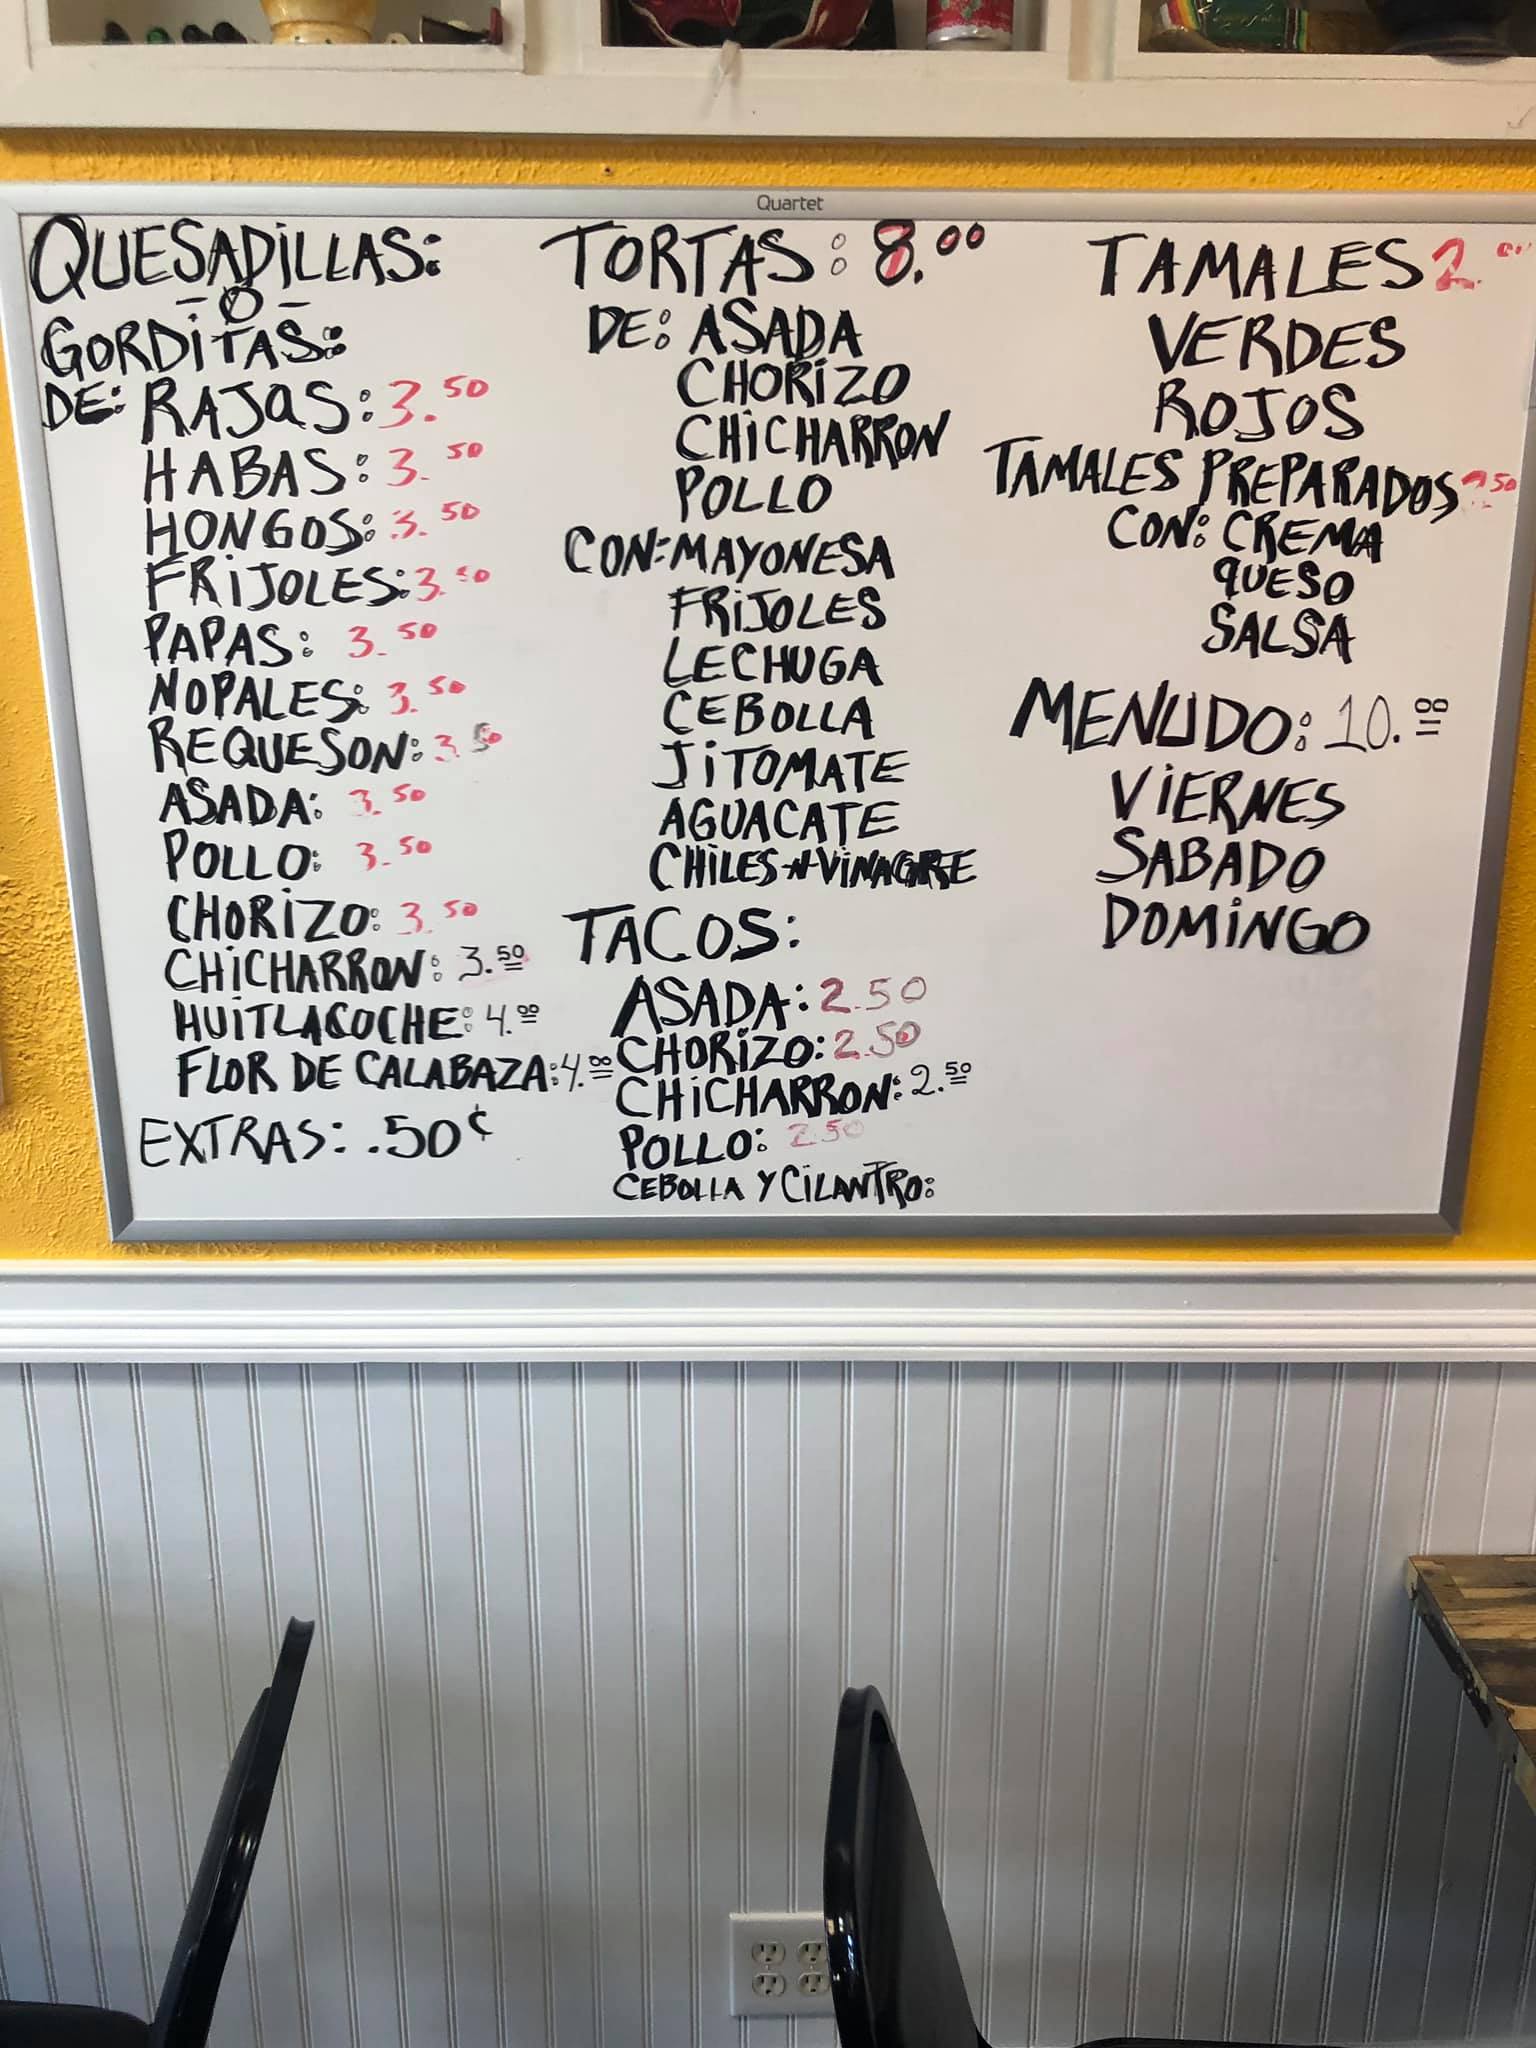 Quartet
QUESADiLLAS:
- O -
GORDiTAS:
DE: RAJAS: 3.50
HABAS: 3.50
HONGOS: 3.50
FRiJOLES: 3.50
PAPAS: 3.50
NOPALES: 3.50
REQUESON: 3.50
ASADA: 3.50
POLLO: 3.50
CHORiZO: 3.50
CHiCHARRON: 3.50
HUiTLACOCHE: 4.00
FLOR DE CALABAZA: 4.00
EXTRAS: .50¢
TORTAS: 8.00
DE: ASADA
CHORiZO
CHiCHARRON
POLLO
CON: MAYONESA
FRiJOLES
LECHUGA
CEBOLLA
JiTOMATE
AGUACATE
CHiLES VINAGRE
TACOS:
ASADA: 2.50
CHORiZO: 2.50
CHiCHARRON: 2.50
POLLO: 2.50
CEBOLLA Y CiLANTRO:
TAMALES 2.00
VERDES
ROJOS
TAMALES PREPARADOS
CON: CREMA
QUESO
SALSA
MENUDO: 10.00
ViERNES
SABADO
DOMiNGO